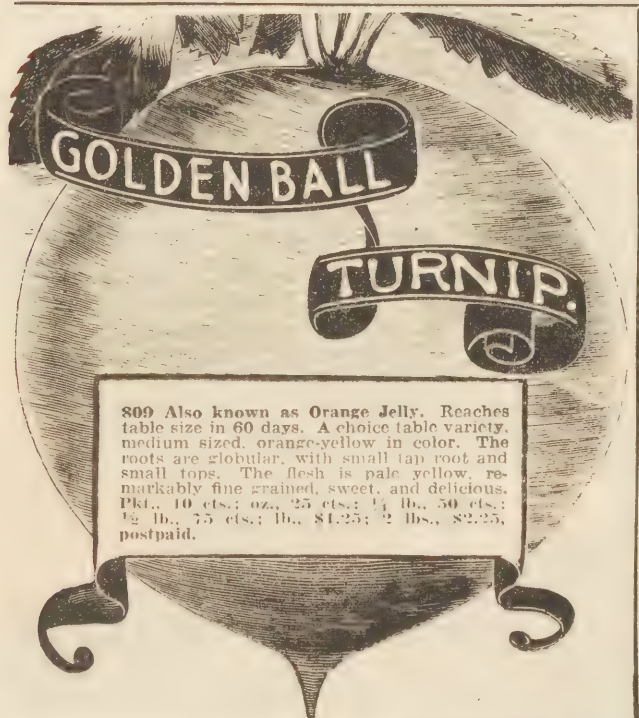 GOLDEN BALL
TURNIP.
809 Also known as Orange Jelly. Reaches
table size in 60 days. A choice table variety,
medium sized, orange-yellow in color. The
roots are globular, with small tap root and
small tops. The flesh is pale yellow, re-
markably fine grained, sweet, and delicious.
Pkt., 10 cts.; oz., 25 cts.; ¼ lb., 50 cts.;
½ lb., 75 cts.; lb., $1.25; 2 lbs., $2.25,
postpaid.